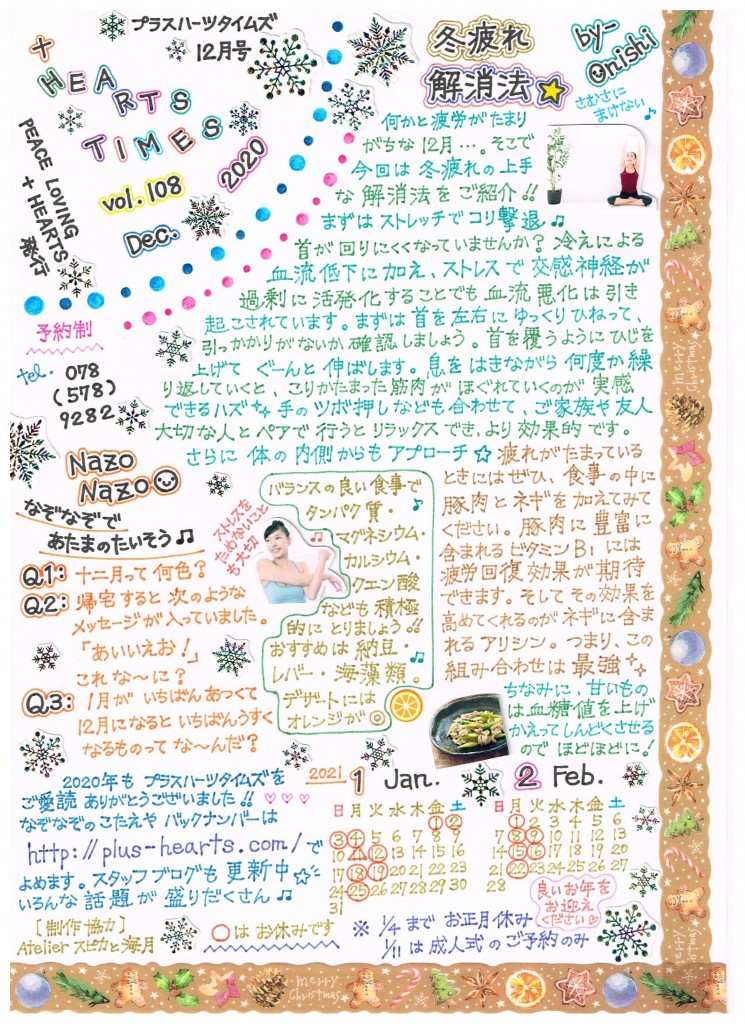 プラスハーツタイムズ
12月号
+HEARTS
TIMES
PEACE LOVING
+HEARTS
発行
vol.108
Dec. 2020
予約制
tel. 078
(578)
9282
冬疲れ
解消法☆
by-
Onishi
さむさに
まけない♪
何かと疲労がたまり
がちな12月…。そこで
今回は冬疲れの上手
な解消法をご紹介!!
まずはストレッチでコリ撃退♫
首が回りにくくなっていませんか?冷えによる
血流低下に加え、ストレスで交感神経が
過剰に活発化することでも血流悪化は引き
起こされています。まずは首を左右にゆっくりひねって、
引っかかりがないか確認しましょう。首を覆うようにひじを
上げて ぐーんと伸ばします。息をはきながら何度か繰
り返していくと、こりかたまった筋肉がほぐれていくのが実感
できるハズ✨手のツボ押しなども合わせて、ご家族や友人
大切な人とペアで行うとリラックスでき、より効果的です。
さらに体の内側からもアプローチ☆疲れがたまっている
ときにはぜひ、食事の中に
豚肉とネギを加えてみて
ください。豚肉に豊富に
含まれるビタミンB₁には
疲労回復効果が期待
できます。そしてその効果を
高めてくれるのがネギに含ま
れるアリシン。つまり、この
組み合わせは最強✨
ちなみに、甘いもの
は血糖値を上げ
かえってしんどくさせる
のでほどほどに!
バランスの良い食事で
タンパク質・♪
マグネシウム・
カルシウム・
クエン酸
なども積極
的にとりましょう!!
おすすめは納豆・
レバー・海藻類。♫
デザートには
オレンジが◎
ストレスを
ためないこと
も大切♫
Nazo
Nazo
なぞなぞで
あたまのたいそう♫
Q.1: 十二月って何色?
Q.2: 帰宅すると次のような
メッセージが入っていました。
「あいいえお!」
これな〜に?
Q.3: 1月がいちばんあつくて
12月になるといちばんうすく
なるものってな〜んだ?
2020年もプラスハーツタイムズを
ご愛読ありがとうございました!!♡♡♡
なぞなぞのこたえやバックナンバーは
http://plus-hearts.com/で
よめます。スタッフブログも更新中☆
いろんな話題が盛りだくさん♫
[制作協力]
Atelierスピカと海月
2021 1 Jan.
日 月 火 水 木 金 土
1 2
3 4 5 6 7 8 9
10 11 12 13 14 15 16
17 18 19 20 21 22 23
24 25 26 27 28 29 30
31
2 Feb.
日 月 火 水 木 金 土
1 2 3 4 5 6
7 8 9 10 11 12 13
14 15 16 17 18 19 20
21 22 23 24 25 26 27
28
良いお年を
お迎え
ください♡
○はお休みです
※ 1/4までお正月休み
1/11は成人式のご予約のみ
merry
Christmas
merry
Christmas
merry
Christmas